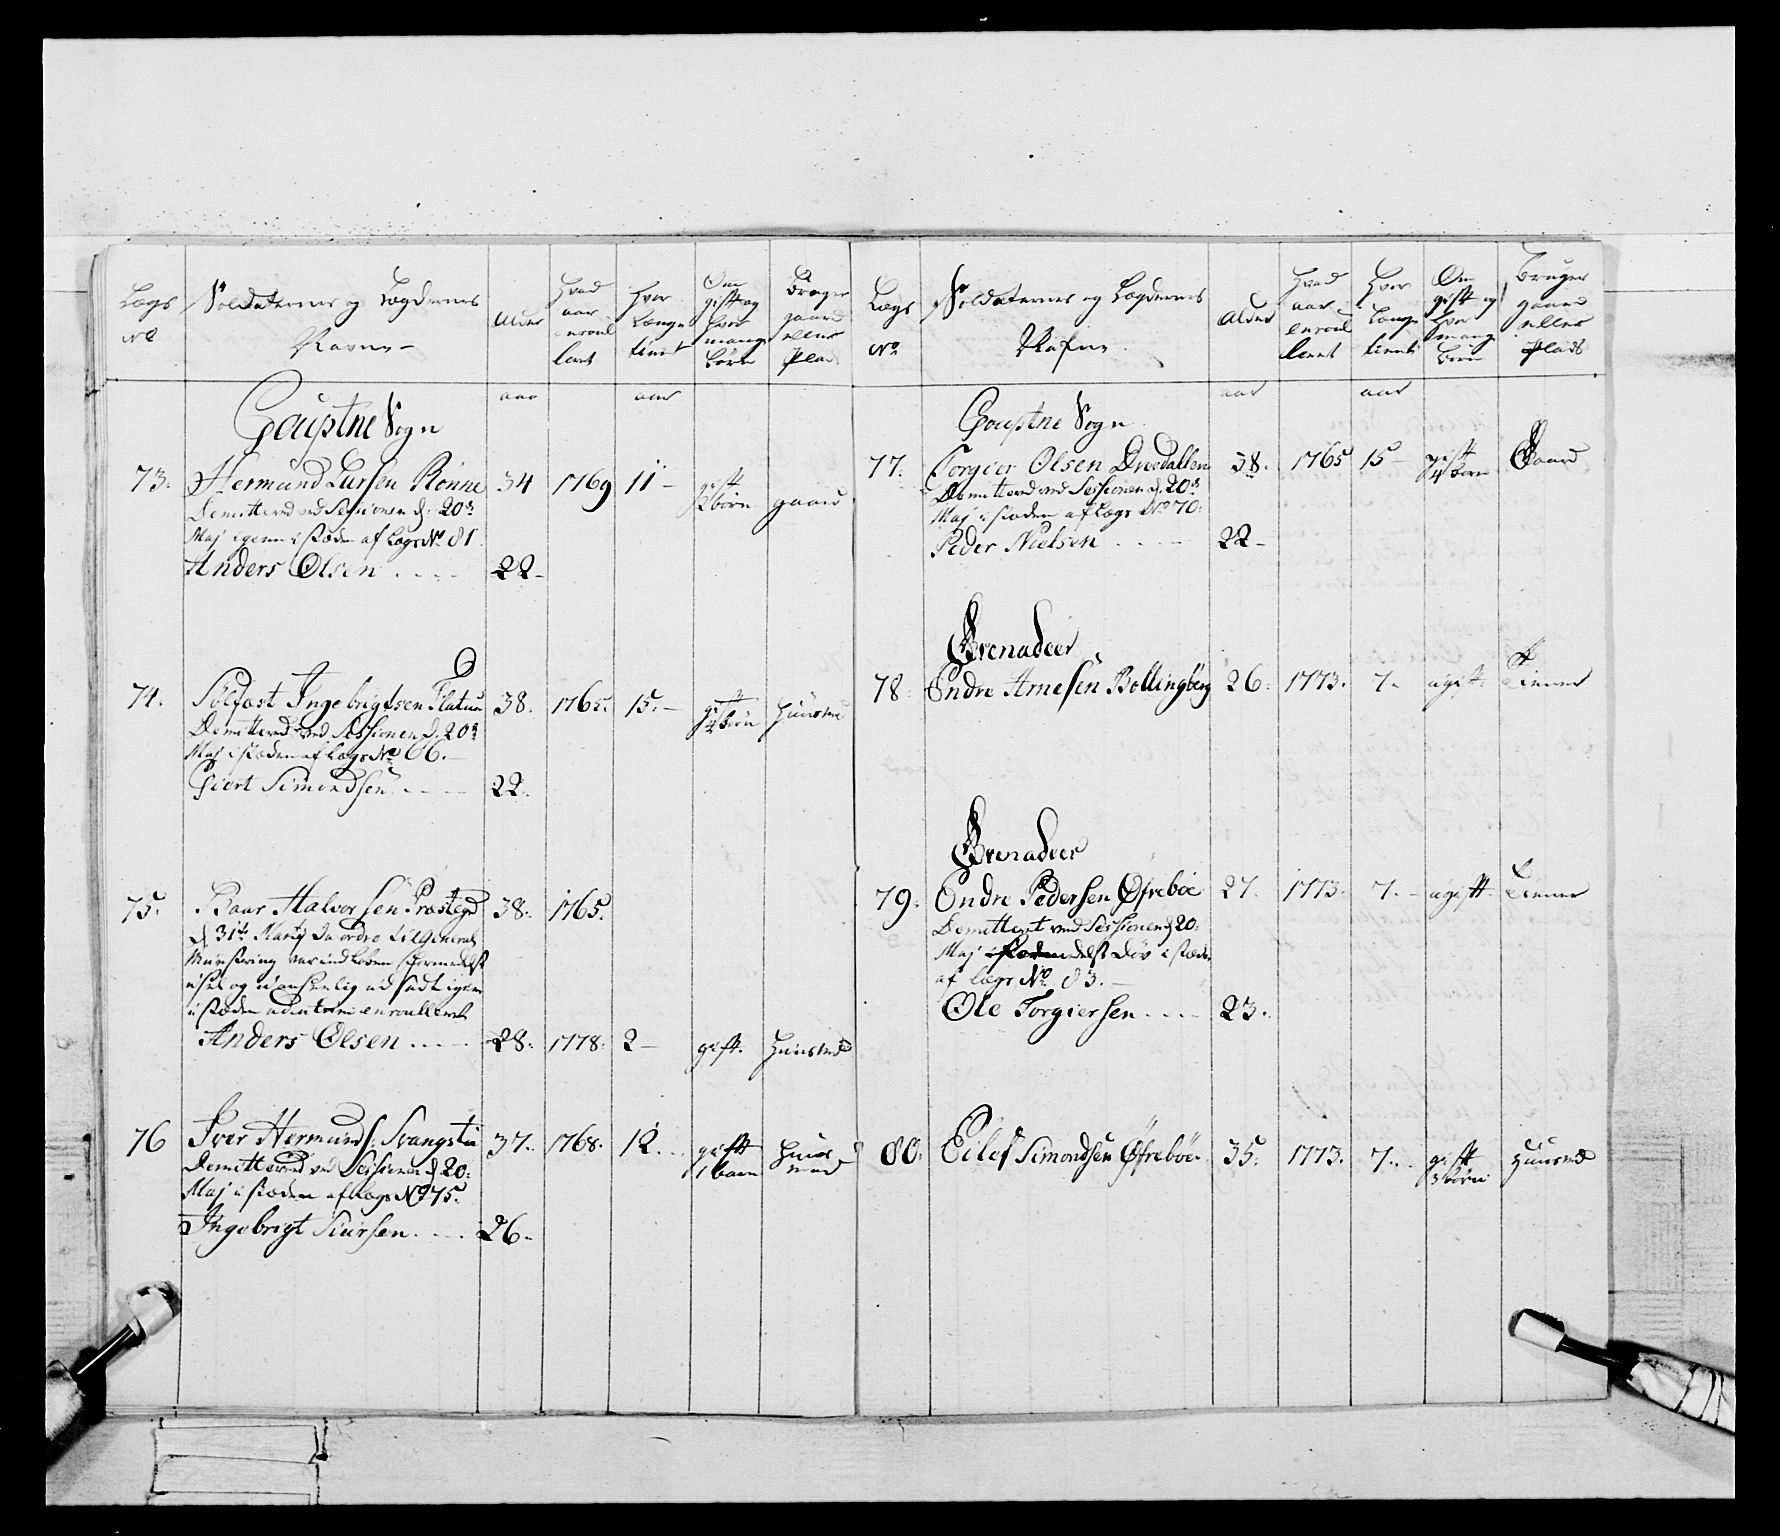 Lægs
No
Soldaternes og Lægdernes
Navne
Alder
Hvad
aar
enroul
leret
Hvor
Længe
tient
Om
gift og
hvor
mange
børn
Bruger
gaard
eller
Plads
aar
aar
Goustne Sogn
73.
Hermund Larsen Rönne
34
1769
11 -
gift
2 børn
gaard
Demitteret ved Sessionen d: 20de
Maj igien i stæden af Lægs No 81.
Anders Olsen . . . .
22 -
74.
Solfast Ingebrigtsen Flatun
38.
1765.
15. -
gift
4 børn
Huusmd
Demitteret ved Sessionen d. 20de
Maj i stæden af Lægs No 66. -
Giert Simondsen . . . .
22.
75.
Baar Halvorsen Præstegd
38.
1765.
d 31te Martij da ordre til General
Mynstring var indløben formedelst
og uanseelig ud sadt igien
i stæden enroulleret
Anders Olsen . . . .
28.
1778.
2 -
gift.
Huusmd
76
Iver Hermunds: Svangstu
37.
1768.
12. . .
gift
1 barn
Huus
mand
Demitteret ved Sessionen d 20.
Maj i stæden af Lægs No 75.
Ingebrigt Siursen . . . .
26 -
Lægs
No
Soldaternes og Lægdernes
Nafne
Alder
Hvad
aar
enroul
leret
Hvor
Længe
tient
Om
gift og
hvor
mange
børn
Bruger
gaard
eller
Plads
aar
aar
Goustne Sogn
77.
Torgier Olsen Dresdallen
38.
1765
15 -
gift
4 børn
Gaard
Demitteret ved Sessionen d. 20de
Maj i stæden af Lægs No 70.
Peder Nielsen . . . .
22 -
Grenadeer
78
Endre Arnesen Bollingberg
26.
1773.
7. -
ugift.
Tiener
Grenadeer
79.
Endre Pedersen Øfrebøe
27.
1773.
7. -
ugift.
Tiener
Demitteret ved Sessionen d 20.
Maj i stæden
af Lægs No 83. -
Ole Torgiersen . . . .
23.
80.
Eilef Simondsen Øfrebøe
35.
1773.
7. . .
gift
3 børn
Huusmd